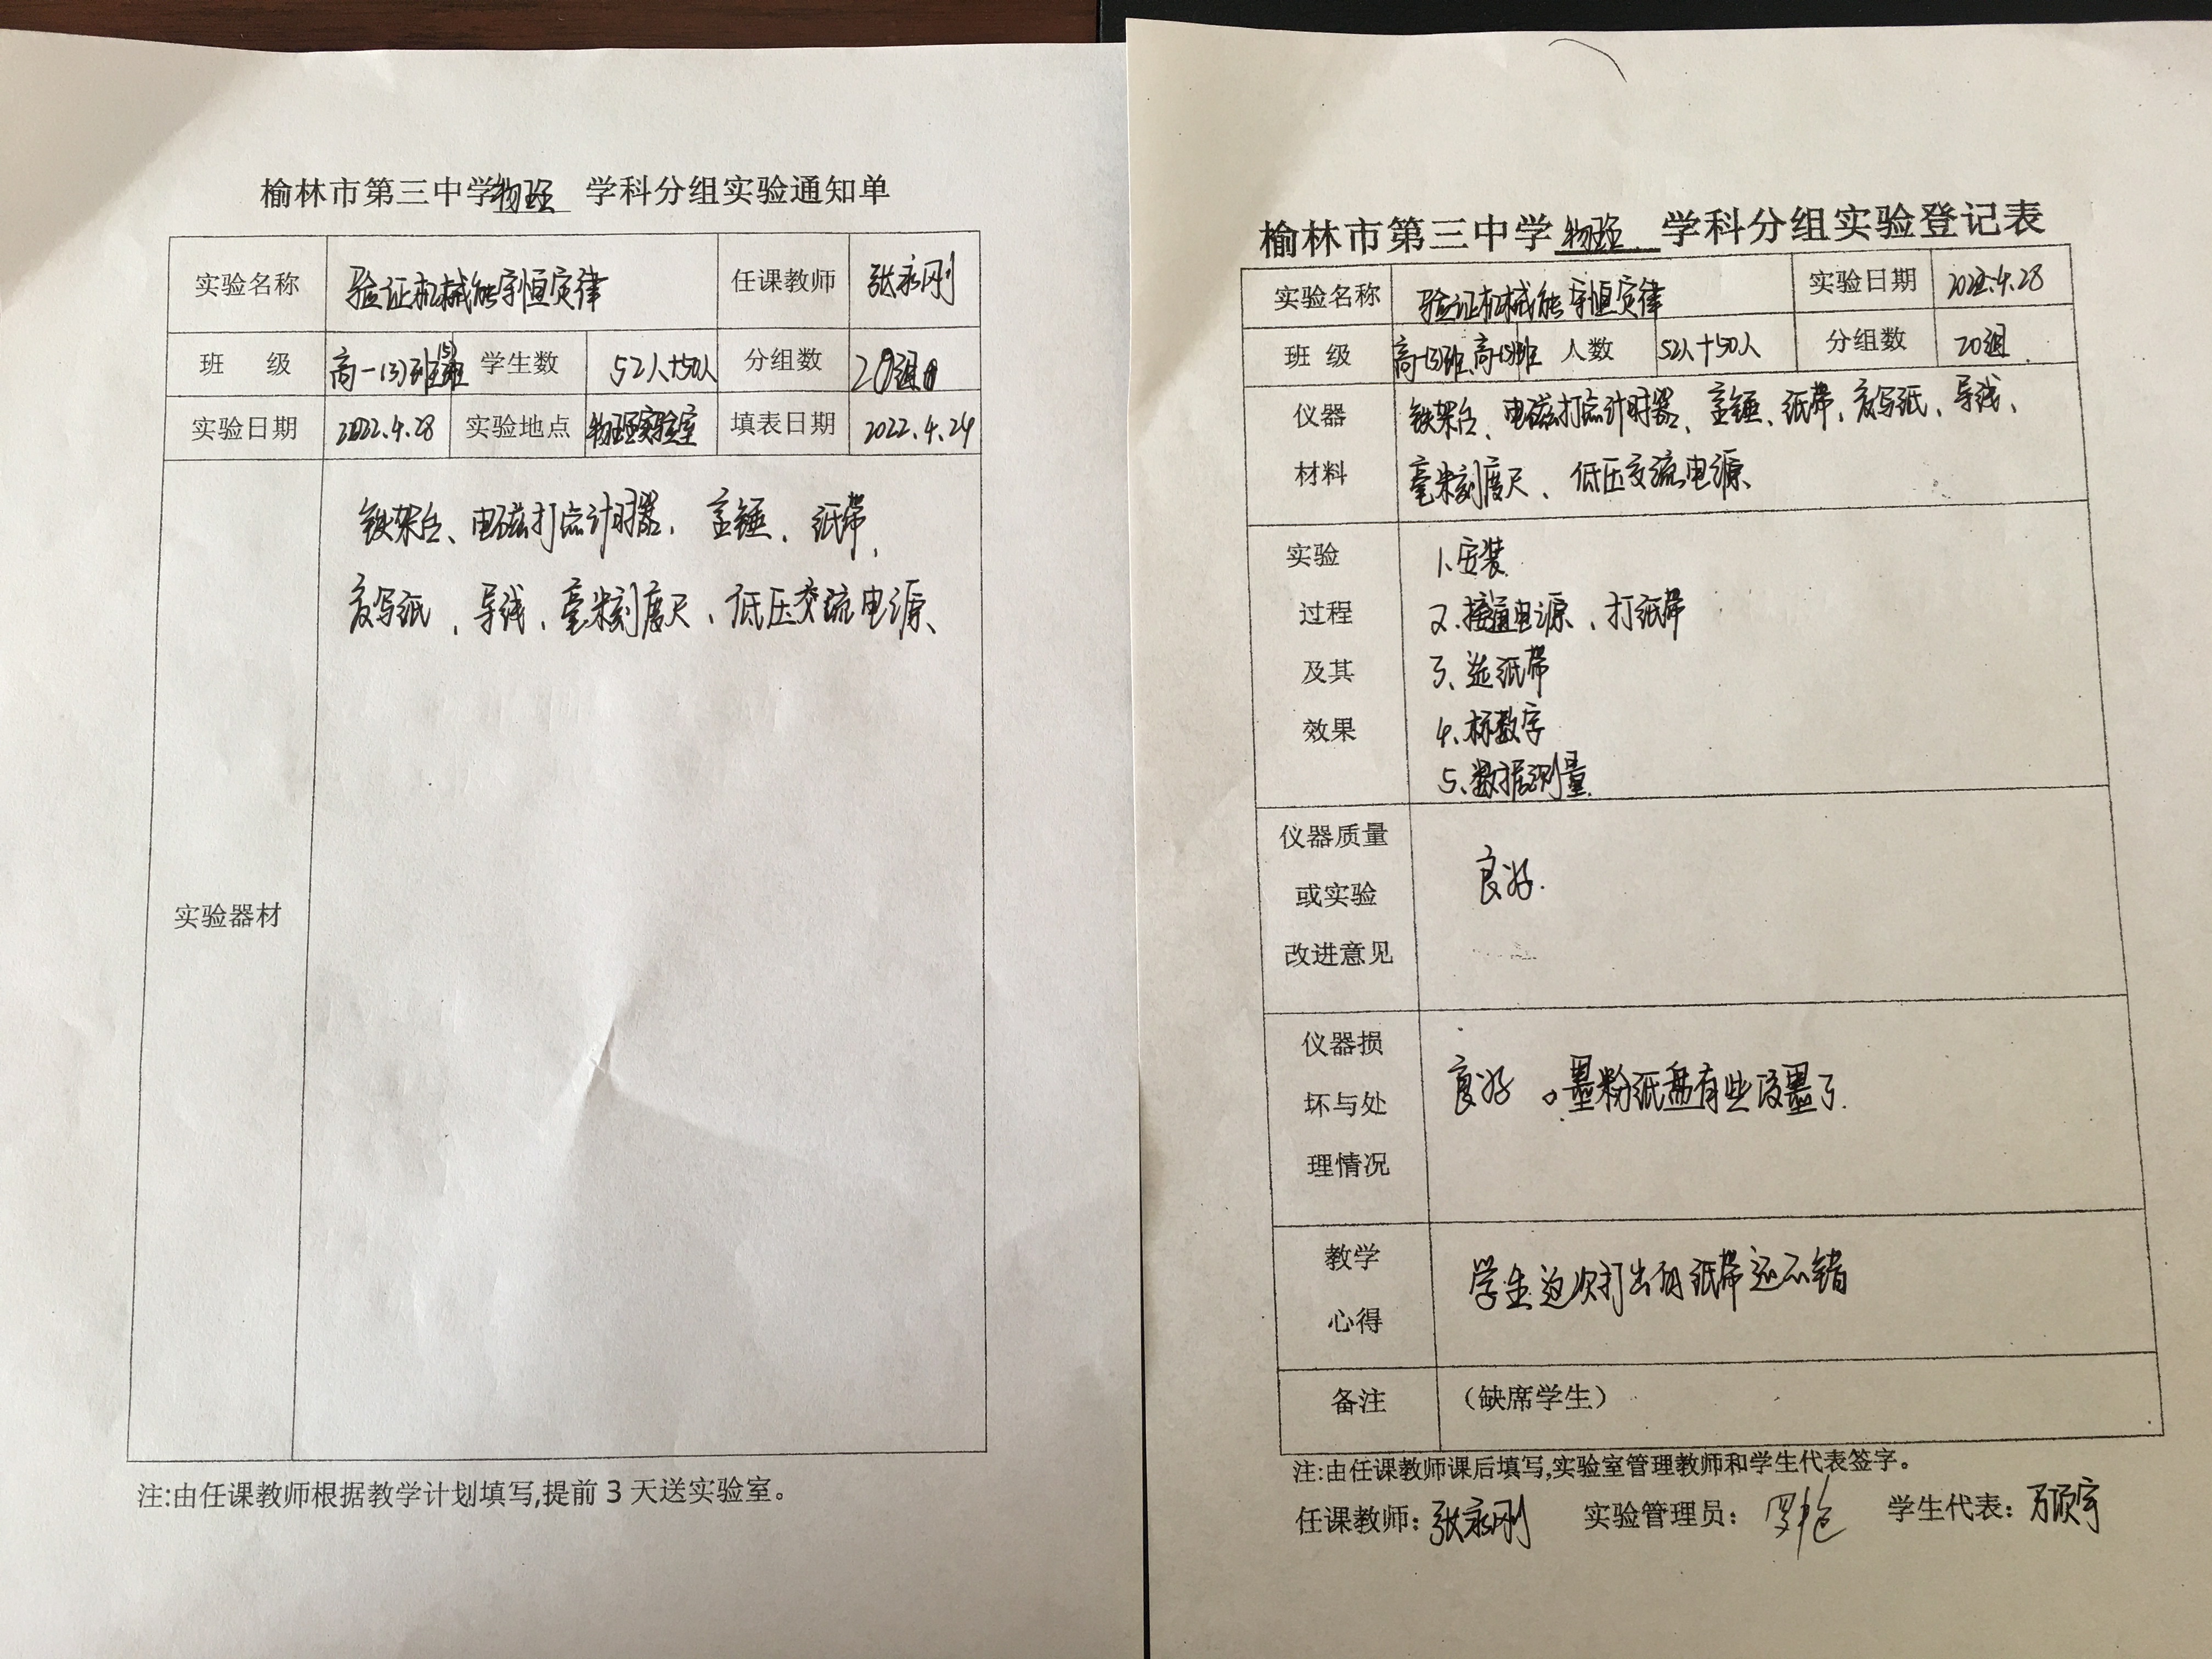 榆林市第三中学物理 学科分组实验通知单
实验名称 验证机械能守恒定律 任课教师 张永刚
班 级 高一(3)班(5)班 学生数 52人+50人 分组数 20组
实验日期 2022.4.28 实验地点 物理实验室 填表日期 2022.4.24
实验器材
铁架台、电磁打点计时器、重锤、纸带、
复写纸、导线、毫米刻度尺、低压交流电源、
注:由任课教师根据教学计划填写,提前3天送实验室。
榆林市第三中学物理 学科分组实验登记表
实验名称 验证机械能守恒定律 实验日期 2022.4.28
班 级 高一(3)班、高一(5)班 人数 52人+50人 分组数 20组
仪器 铁架台、电磁打点计时器、重锤、纸带、复写纸、导线、
材料 毫米刻度尺、低压交流电源、
实验 1.安装
过程 2.接通电源、打纸带
及其 3.选纸带
效果 4.标数字
5.数据测量
仪器质量
或实验 良好.
改进意见
仪器损
坏与处 良好。墨粉纸盘有些没墨了.
理情况
教学 学生这次打出的纸带还不错
心得
备注 （缺席学生）
注:由任课教师课后填写,实验室管理教师和学生代表签字。
任课教师：张永刚 实验管理员： 学生代表：